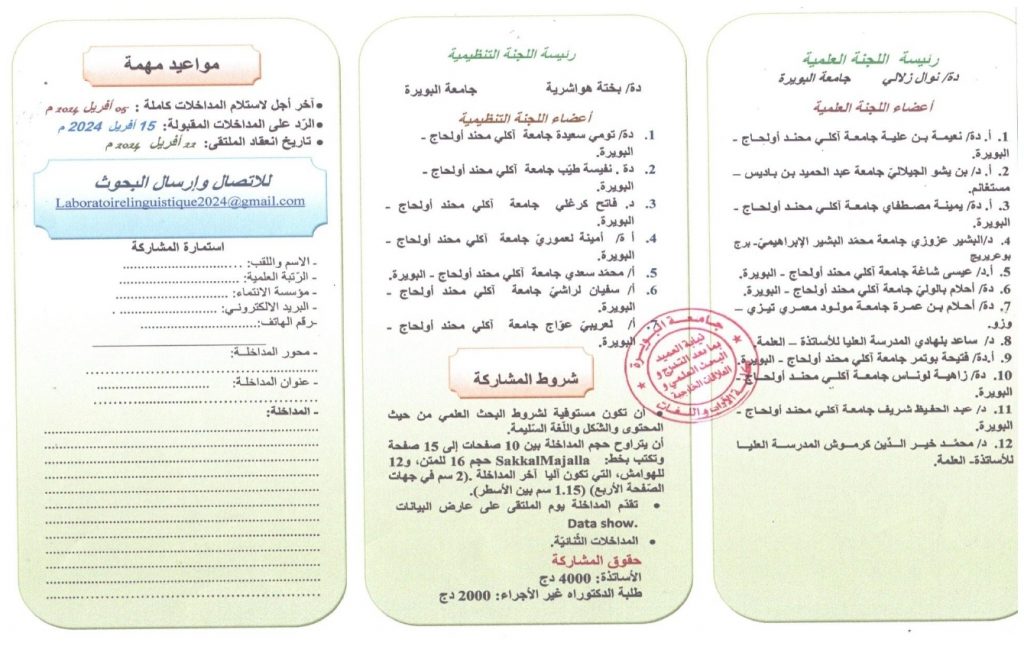 رئيسة اللجنة العلمية
دة/ نوال زلالي جامعة البويرة
أعضاء اللجنة العلمية
1. أ. دة/ نعيمة بن علية جامعة آكلي محند أولحاج - البويرة.
2. أ. د/ بن يشو الجيلاليّ جامعة عبد الحميد بن باديس – مستغانم.
3. أ. دة/ يمينة مصطفاي جامعة آكلي محند أولحاج - البويرة.
4. د/البشير عزوزي جامعة محمّد البشير الإبراهيميّ- برج بوعريريج
5. أ.د/ عيسى شاغة جامعة آكلي محند أولحاج - البويرة.
6. دة/ أحلام بالوليّ جامعة آكلي محند أولحاج - البويرة.
7. دة/ أحلام بن عمرة جامعة مولود معمري تيزي – وزو.
8. د/ ساعد بلهادي المدرسة العليا للأساتذة – العلمة.
9. أ.دة/ فتيحة بوتمر جامعة آكلي محند أولحاج - البويرة.
10. دة/ زاهية لوناس جامعة آكلي محند أولحاج - البويرة.
11. د/ عبد الحفيظ شريف جامعة آكلي محند أولحاج - البويرة.
12. د/ محمّد خير الدّين كرموش المدرسة العليا للأساتذة- العلمة.
رئيسة اللجنة التنظيمية
دة/ بختة هواشرية جامعة البويرة
أعضاء اللجنة التنظيمية
1. دة/ تومي سعيدة جامعة آكلي محند أولحاج - البويرة.
2. دة . نفيسة طيّب جامعة آكلي محند أولحاج - البويرة.
3. د. فاتح كرغلي جامعة آكلي محند أولحاج - البويرة.
4. أ ة/ أمينة لعموريّ جامعة آكلي محند أولحاج - البويرة.
5. أ/ محمّد سعدي جامعة آكلي محند أولحاج - البويرة.
6. أ/ سفيان لراشيّ جامعة آكلي محند أولحاج - البويرة.
7. أ/ لعريبيّ عوّاج جامعة آكلي محند أولحاج - البويرة.
جامعة البويرة
نيابة العميد
بما بعد التدرج و
البحث العلمي و
العلاقات الخارجية
كلية الآداب و اللغات
شروط المشاركة
• أن تكون مستوفية لشروط البحث العلمي من حيث
المحتوى والشّكل واللّغة السّليمة.
أن يتراوح حجم المداخلة بين 10 صفحات إلى 15 صفحة
وتكتب بخط: SakkalMajalla حجم 16 للمتن، و12
للهوامش، التي تكون آليا آخر المداخلة .(2 سم في جهات
الصّفحة الأربع) (1.15 سم بين الأسطر).
• تقدّم المداخلة يوم الملتقى على عارض البيانات
Data show.
• المداخلات الثّنائيّة.
حقوق المشاركة
الأساتذة: 4000 دج
طلبة الدكتوراه غير الأجراء: 2000 دج
مواعيد مهمة
• آخر أجل لاستلام المداخلات كاملة : 05 أفريل 2024 م
• الرّد على المداخلات المقبولة: 15 أفريل 2024 م
• تاريخ انعقاد الملتقى: 22 أفريل 2024م
للاتصال وإرسال البحوث
Laboratoirelinguistique2024@gmail.com
استمارة المشاركة
- الاسم واللقب: ..............................
- الرّتبة العلمية: ..............................
- مؤسسة الانتماء: ..............................
- البريد الالكتروني: ..............................
-رقم الهاتف: ..............................
- محور المداخلة: ..............................
- عنوان المداخلة: ..............................
- المداخلة: ..............................